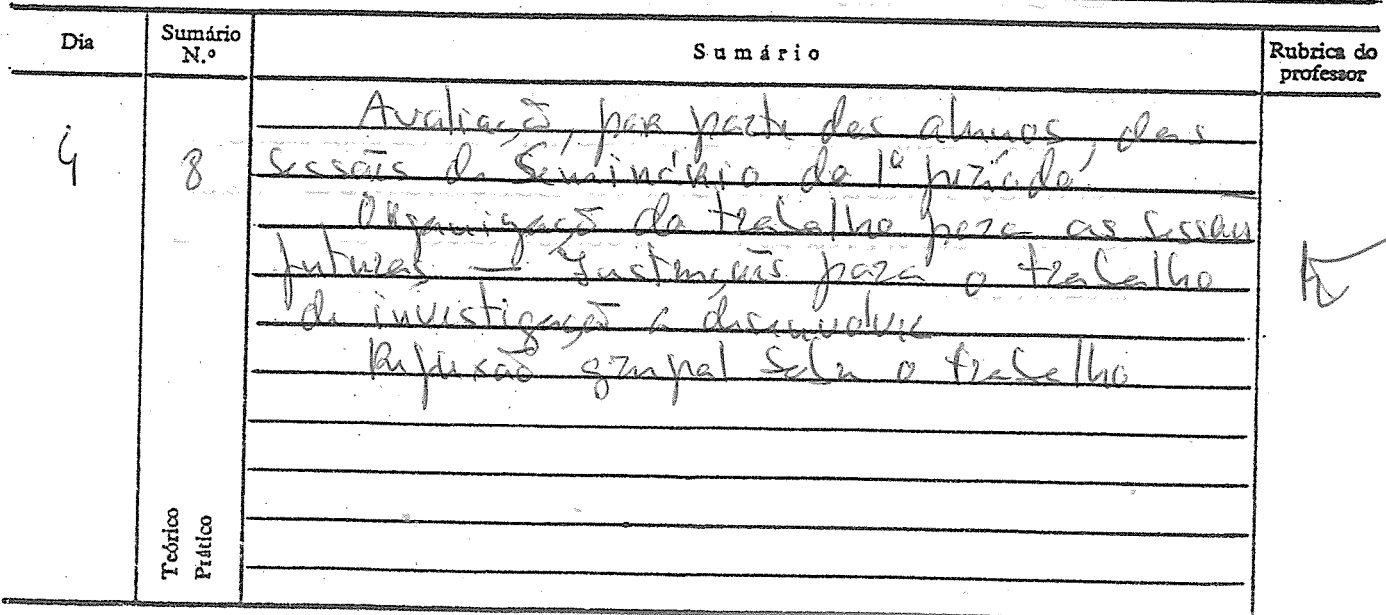 Dia
Sumário N.º
Sumário
Rubrica do professor
4
8
Avaliação, por parte dos alunos, das
sessões de Seminário do 1º período.
Organização do trabalho para as sessões
futuras — Instruções para o trabalho
de investigação a desenvolver
Reflexão grupal sobre o trabalho
Teórico
Prático